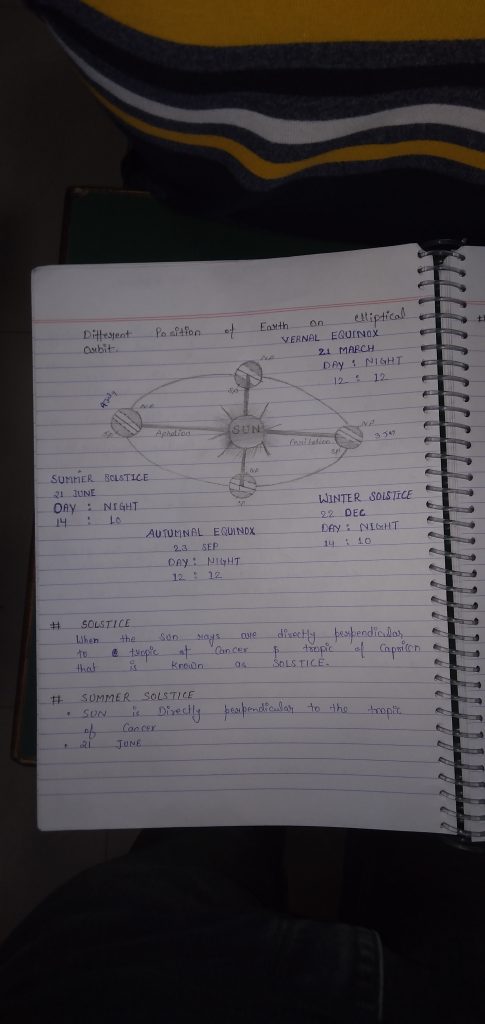 Different Position of Earth on elliptical
orbit.
VERNAL EQUINOX
21 MARCH
DAY : NIGHT
12 : 12
NP
SP
4 July
NP
SP
Aphelion
SUN
Perihelion
NP
SP
3 Jan
NP
SP
SUMMER SOLSTICE
21 JUNE
DAY : NIGHT
14 : 10
WINTER SOLSTICE
22 DEC
DAY : NIGHT
14 : 10
AUTUMNAL EQUINOX
23 SEP
DAY : NIGHT
12 : 12
# SOLSTICE
When the Sun rays are directly perpendicular
to tropic of Cancer & tropic of Capricon
that is known as SOLSTICE.
# SUMMER SOLSTICE
• SUN is Directly perpendicular to the tropic
of Cancer
• 21 JUNE